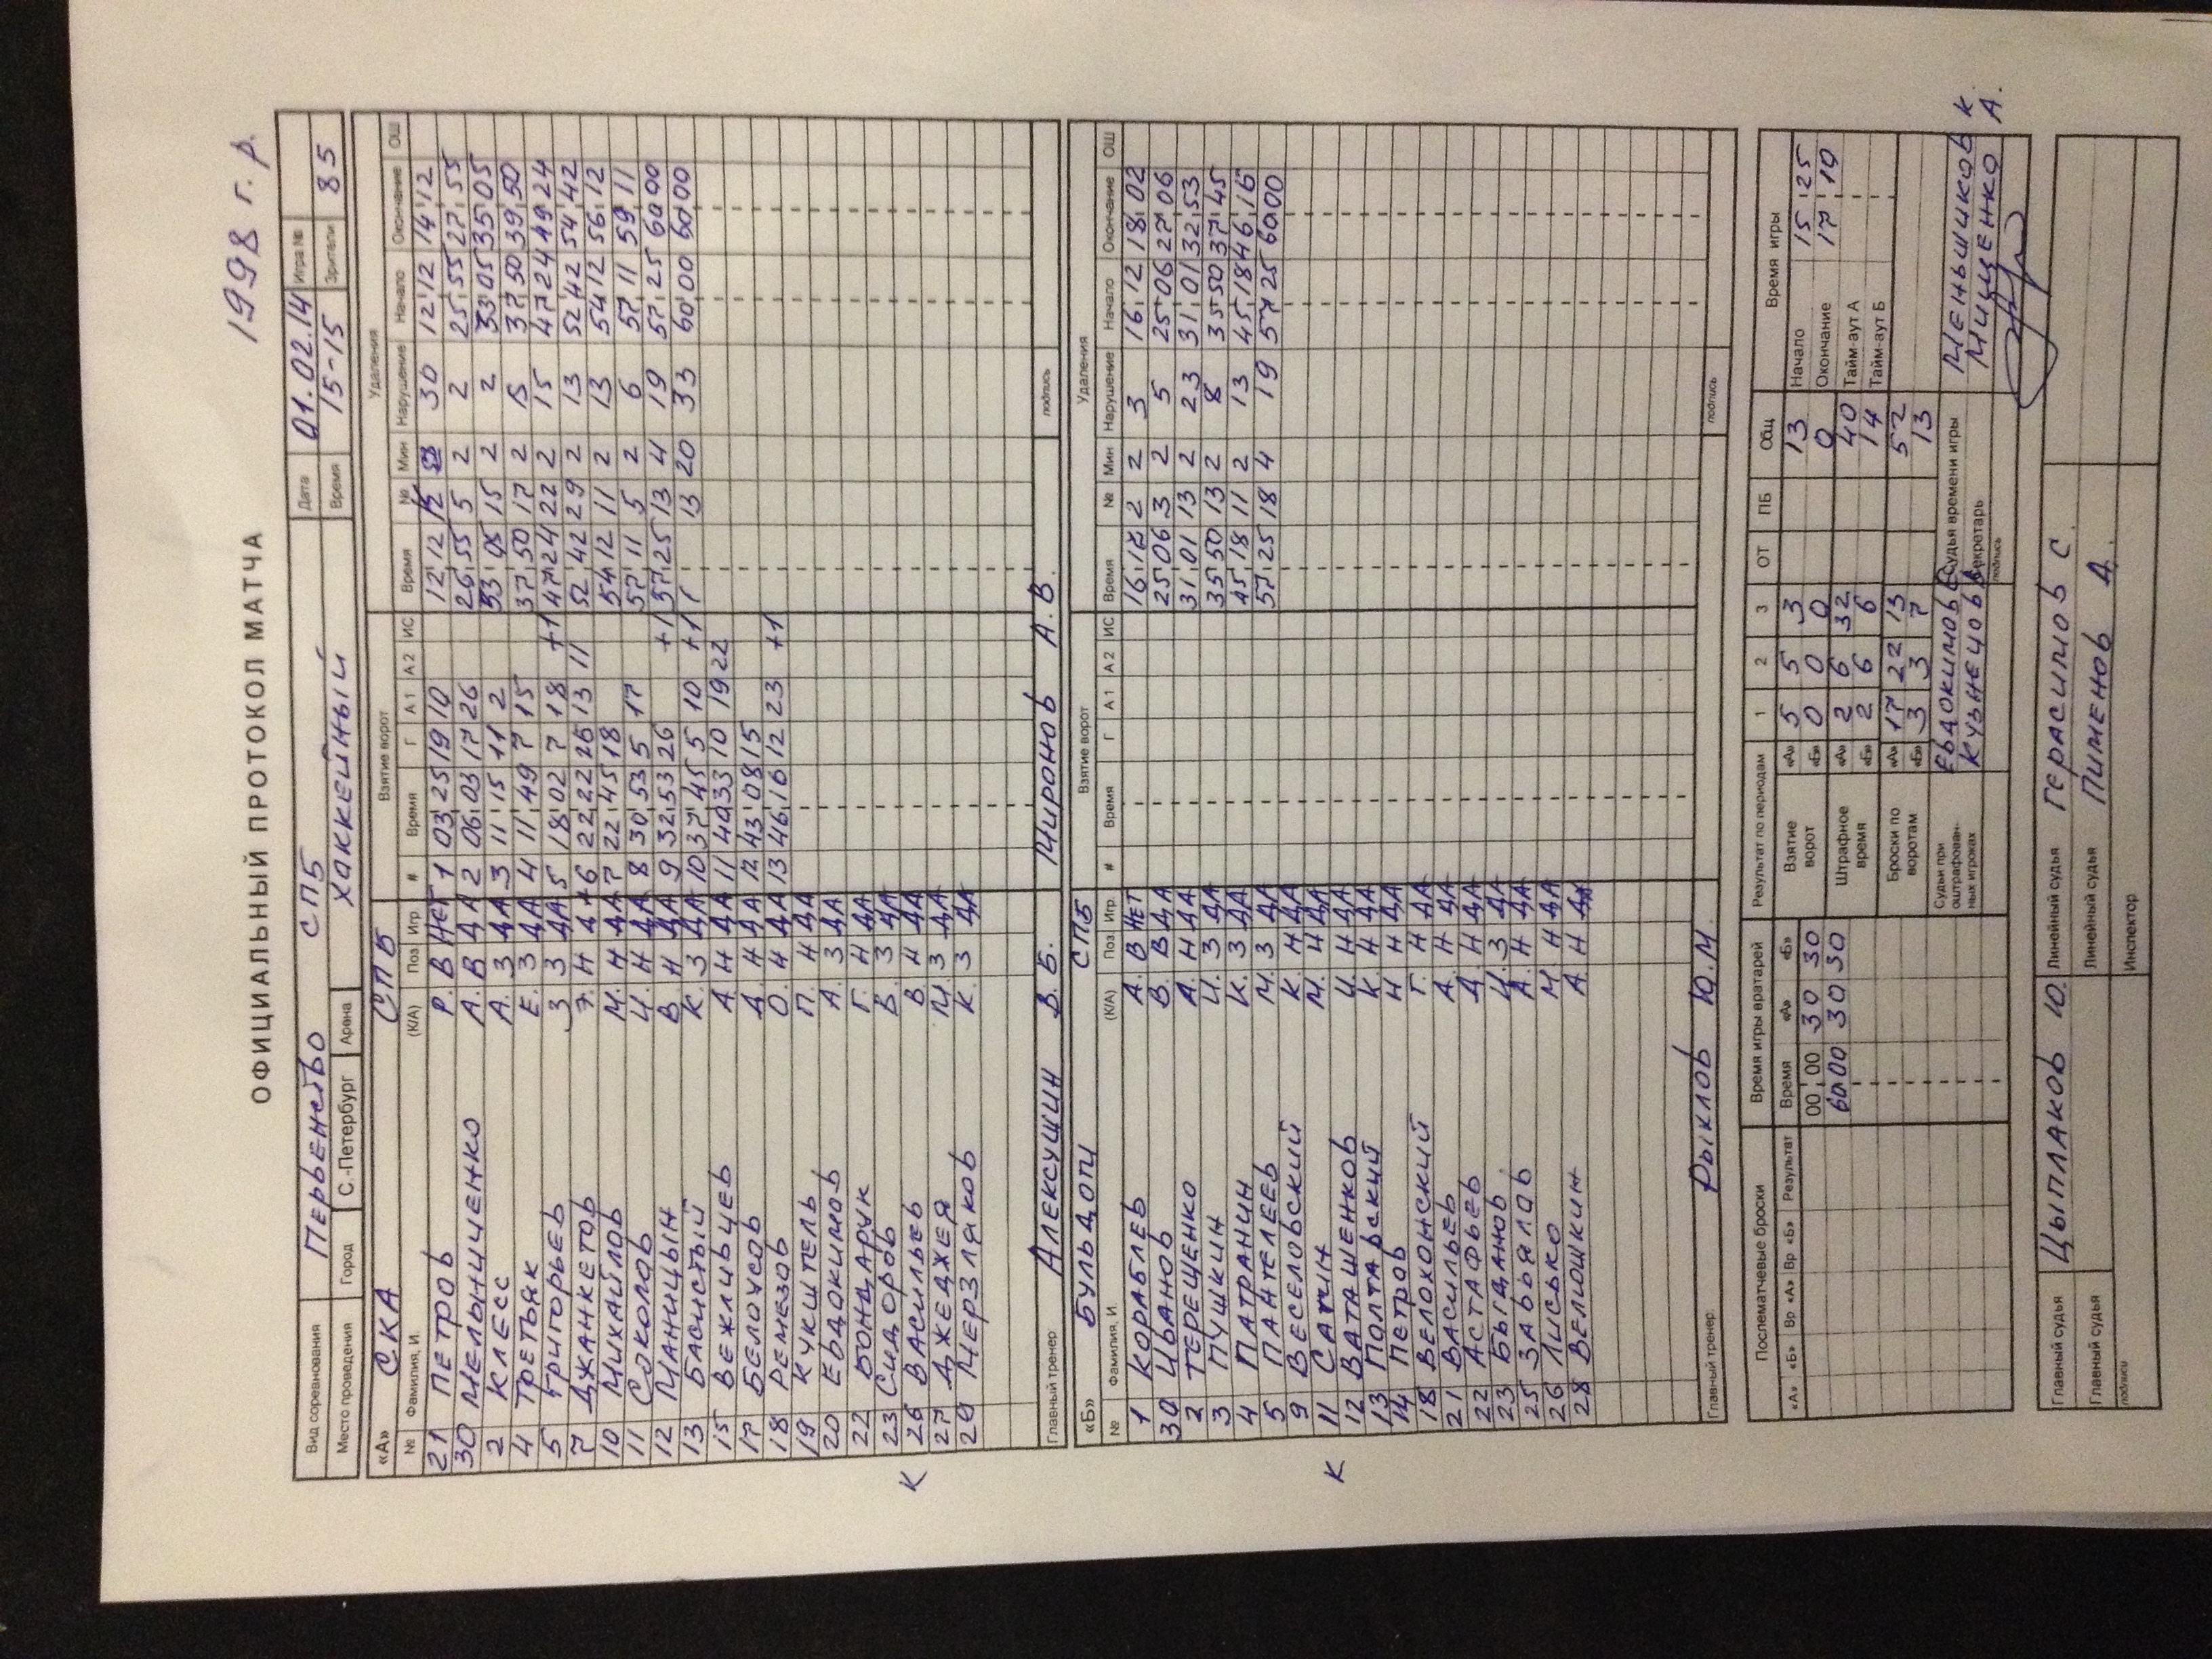 1998 г. р.
ОФИЦИАЛЬНЫЙ ПРОТОКОЛ МАТЧА
Вид соревнования Первенство СПБ Дата 01.02.14 Игра №
Место проведения Город С.-Петербург Арена Хоккейный Время 15-15 Зрители 85
«А» СКА СПБ Взятие ворот Удаления
№ Фамилия, И. (К/А) Поз Игр # Время Г А 1 А 2 ИС Время № Мин Нарушение Начало Окончание ОШ
21 Петров Р. В Нет 1 03 25 19 10 12 12 2 30 12 12 14 12
30 Мельниченко А. В ДА 2 06 03 17 26 26 55 5 2 2 25 55 27 55
2 Клесс А. З ДА 3 11 15 11 2 33 05 15 2 2 33 05 35 05
4 Третьяк Е. З ДА 4 11 49 7 15 37 50 17 2 37 50 39 50
5 Григорьев З. З ДА 5 18 02 7 18 +1 47 24 22 2 15 47 24 49 24
7 Джанкетов Э. Н ДА 6 22 22 26 13 11 52 42 29 2 13 52 42 54 42
10 Михайлов М. Н ДА 7 22 45 18 54 12 11 2 13 54 12 56 12
11 Соколов И. Н ДА 8 30 53 5 17 57 11 5 2 6 57 11 59 11
12 Маницын В Н ДА 9 32 53 26 +1 57 25 13 4 19 57 25 60 00
13 Басистый К. З ДА 10 37 45 5 10 +1 13 20 33 60 00 60 00
15 Вежливцев А Н ДА 11 40 33 10 19 22
17 Белоусов Д. Н ДА 12 43 08 15
18 Ремезов О. Н ДА 13 46 16 12 23 +1
19 Кукштель П. Н ДА
20 Евдокимов А. З ДА
22 Бондарук Г. Н ДА
23 Сидоров В. З ДА
К 26 Васильев В Н ДА
27 Джеджея М З ДА
29 Мерзляков К. З ДА
Главный тренер Алексушин В. Б. Миронов А. В. подпись
«Б» Бульдоги СПБ Взятие ворот Удаления
№ Фамилия, И. (К/А) Поз Игр # Время Г А 1 А 2 ИС Время № Мин Нарушение Начало Окончание ОШ
1 Кораблев А. В Нет 16 12 2 2 3 16 12 18 02
30 Иванов В. В ДА 25 06 3 2 5 25 06 27 06
2 Терещенко А. Н ДА 31 01 13 2 23 31 01 32 53
3 Пушкин И. З ДА 35 50 13 2 8 35 50 37 45
4 Патранин К. З ДА 45 18 11 2 13 45 18 46 16
5 Пантелеев М. З ДА 57 25 18 4 19 57 25 60 00
9 Веселовский К. Н ДА
11 Сагин М. Н ДА
К 12 Ваташенков И. Н ДА
13 Полтавский К Н ДА
14 Петров И Н ДА
18 Велохонский Г. Н ДА
21 Васильев А. Н ДА
22 Астафьев Д. Н ДА
23 Быданов И. З ДА
25 Завьялов А. Н ДА
26 Лисько М Н ДА
28 Велюшкин А. Н ДА
Главный тренер Рыклов Ю. М. подпись
Послематчевые броски Время игры вратарей Результат по периодам 1 2 3 ОТ ПБ Общ Время игры
«А» «Б» Вр «А» Вр «Б» Результат Время «А» «Б» Взятие ворот «А» 5 5 3 13 Начало 15 25
00 00 30 30 «Б» 0 0 0 0 Окончание 17 10
60 00 30 30 Штрафное время «А» 2 6 32 40 Тайм-аут А
«Б» 2 6 6 14 Тайм-аут Б
Броски по воротам «А» 17 22 13 52
«Б» 3 3 7 13
Судьи при оштрафованных игроках Евдокимов Судья времени игры Меньшиков К
Кузнецов Секретарь Мищенко А.
подпись
Главный судья Цыплаков Ю. Линейный судья Герасимов С.
Главный судья Линейный судья Пименов А.
подписи Инспектор